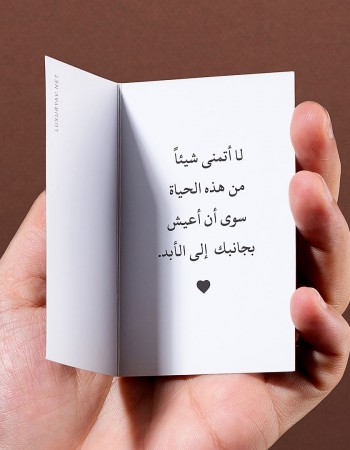 لا أتمنى شيئاً
من هذه الحياة
سوى أن أعيش
بجانبك إلى الأبد.